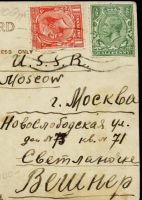 CARD
ESS ONLY
U.S.S.R.
Moscow
г. Москва
Новослободская ул.
дом № 73 кв. № 71
Светланочке
Вешнер